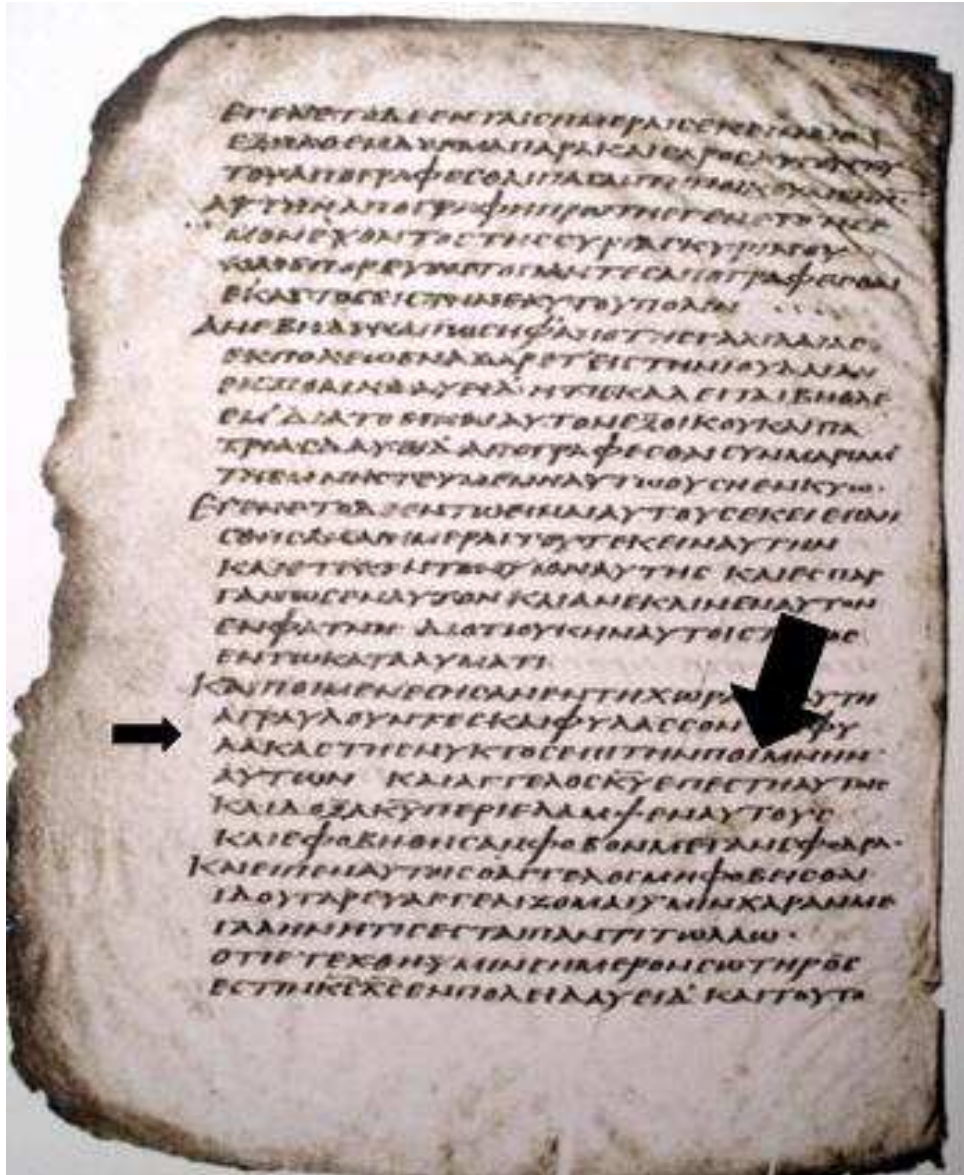 ΕΓΕΝΕΤΟΔΕΕΝΤΑΙϹΗΜΕΡΑΙϹΕΚΕΙΝΑΙϹ
ΠΑΡΑΚΑΙϹΑΡΟϹ
ΤΟΥΑΠΟΓΡΑΦΕϹΘΑΙΠΑϹΑΝΤΗΝ
ΑΥΤΗΗΑΠΟΓΡΑΦΗΠΡΩΤΗΕΓΕΝΕΤΟΗΓΕ
ΜΟΝΕΥΟΝΤΟϹΤΗϹϹΥΡΙΑϹΚΥΡΙΝΟΥ
ΚΑΙΕΠΟΡΕΥΟΝΤΟΠΑΝΤΕϹΑΠΟΓΡΑΦΕϹΘΑΙ
ΕΚΑϹΤΟϹΕΙϹΤΗΝΕΑΥΤΟΥΠΟΛΙΝ
ΑΝΕΒΗΔΕΚΑΙΙΩϹΗΦΑΠΟΤΗϹΓΑΛΙΛΑΙΑϹ
ΕΚΠΟΛΕΩϹΝΑΖΑΡΕΤʼΕΙϹΤΗΝΙΟΥΔΑΙΑΝ
ΕΙϹΠΟΛΙΝΔΑΥΕΙΔʼΗΤΙϹΚΑΛΕΙΤΑΙΒΗΘΛΕ
ΕΜʼΔΙΑΤΟΕΙΝΑΙΑΥΤΟΝΕΞΟΙΚΟΥΚΑΙΠΑ
ΤΡΙΑϹΔΑΥΕΙΔʼΑΠΟΓΡΑΦΕϹΘΑΙϹΥΝΜΑΡΙΑΜ
ΤΗΕΜΝΗϹΤΕΥΜΕΝΗΑΥΤΩΟΥϹΗΕΝΚΥΩ·
ΕΓΕΝΕΤΟΔΕΕΝΤΩΕΙΝΑΙΑΥΤΟΥϹΕΚΕΙΕΠΛΗ
ϹΘΗϹΑΝΑΙΗΜΕΡΑΙΤΟΥΤΕΚΕΙΝΑΥΤΗΝ
ΚΑΙΕΤΕΚΕΝΤΟΝΥΙΟΝΑΥΤΗϹ ΚΑΙΕϹΠΑΡ
ΓΑΝΩϹΕΝΑΥΤΟΝ ΚΑΙΑΝΕΚΛΙΝΕΝΑΥΤΟΝ
ΕΝΦΑΤΝΗ ΔΙΟΤΙΟΥΚΗΝΑΥΤΟΙϹ
ΕΝΤΩΚΑΤΑΛΥΜΑΤΙ
ΚΑΙΠΟΙΜΕΝΕϹΗϹΑΝΕΝΤΗΧΩΡΑ ΑΥΤΗ
ΑΓΡΑΥΛΟΥΝΤΕϹΚΑΙΦΥΛΑϹϹΟΝ ΦΥ
ΛΑΚΑϹΤΗϹΝΥΚΤΟϹΕΠΙΤΗΝΠΟΙΜΝΗΝ
ΑΥΤΩΝ ΚΑΙΑΓΓΕΛΟϹΚ̅Υ̅ΕΠΕϹΤΗΑΥΤΟΙϹ
ΚΑΙΔΟΞΑΚ̅Υ̅ΠΕΡΙΕΛΑΜΨΕΝΑΥΤΟΥϹ
ΚΑΙΕΦΟΒΗΘΗϹΑΝΦΟΒΟΝΜΕΓΑΝϹΦΟΔΡΑ·
ΚΑΙΕΙΠΕΝΑΥΤΟΙϹΟΑΓΓΕΛΟϹΜΗΦΟΒΕΙϹΘΑΙ
ΙΔΟΥΓΑΡΕΥΑΓΓΕΛΙΖΟΜΑΙΥΜΙΝΧΑΡΑΝΜΕ
ΓΑΛΗΝΗΤΙϹΕϹΤΑΙΠΑΝΤΙΤΩΛΑΩ·
ΟΤΙΕΤΕΧΘΗΥΜΙΝϹΗΜΕΡΟΝϹΩΤΗΡΟϹ
ΕϹΤΙΝΚ̅Ϲ̅Χ̅Ϲ̅ΕΝΠΟΛΕΙΔΑΥΕΙΔʼ ΚΑΙΤΟΥΤΟ